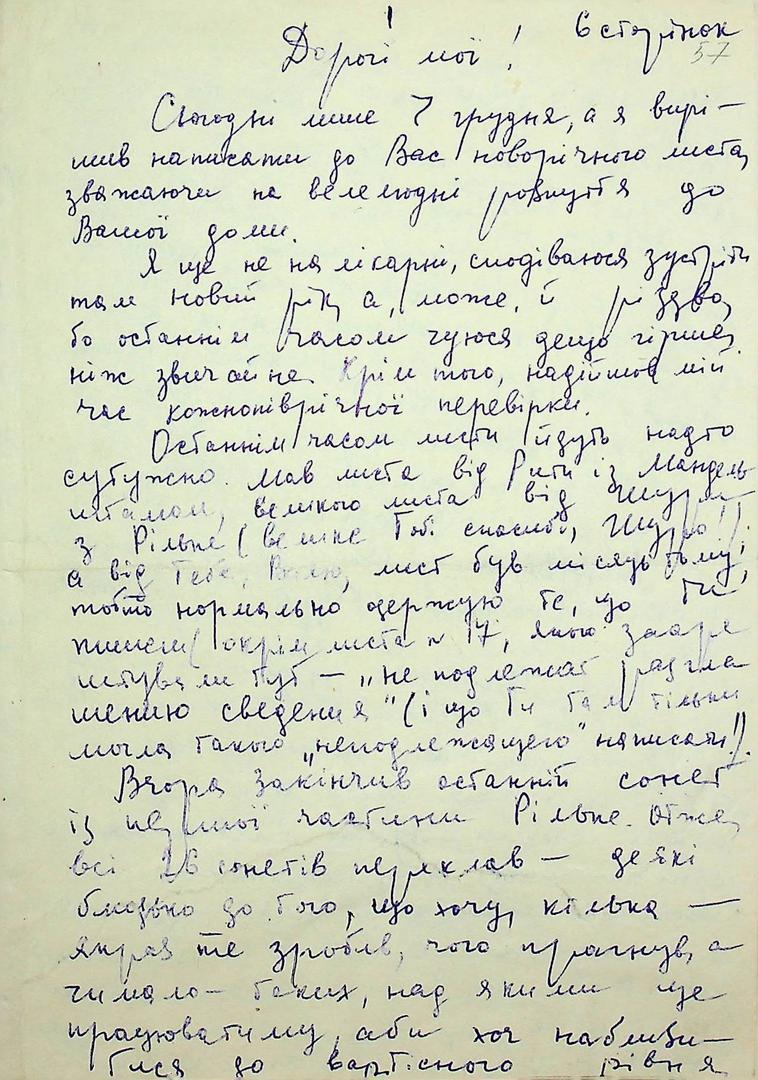 6 сторінок
57
Дорогі мої!
Сьогодні лише 7 грудня, а я вирі-
шив написати до Вас новорічного листа,
зважаючи на велелюдні розпуття до
Вашої доми.
Я ще не на лікарні, сподіваюся зустріти
там новий рік, а, може, й різдво,
бо останнім часом чуюся дещо гірше,
ніж звичайне. Крім того, надійшов мій
час кожнопіврічної перевірки.
Останнім часом листи йдуть надто
сутужно. Мав листа від Рити із Мандель-
штамом, великого листа від Шури
з Рільке (велике Тобі спасибі, Шуро!),
а від Тебе, Валю, лист був місяць тому,
тобто нормально одержую те, що Ти
пишеш (окрім листа № 17, якого зааре-
штували тут — „не подлежат разгла-
шению сведения" (і що Ти там тільки
могла такого „неподлежащего" написати!).
Вчора закінчив останній сонет
із першої частини Рільке. Отже,
всі 26 сонетів переклав — деякі
близько до того, що хочу, кілька —
якраз те зробив, чого прагнув, а
чимало — таких, над якими ще
працюватиму, аби хоч наблизи-
тися до вартісного рівня